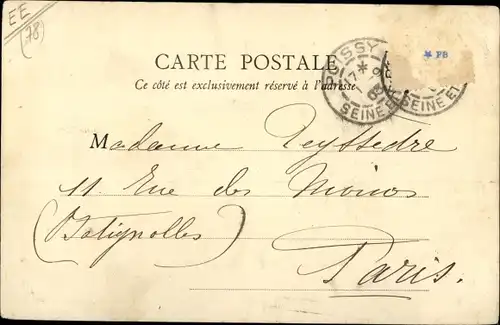 EE
(78)
CARTE POSTALE
Ce côté est exclusivement réservé à l'adresse
POISSY
SEINE ET
SEINE ET
* FB
Madame Teyssedre
11 Rue des Moines
(Batignolles)
Paris.